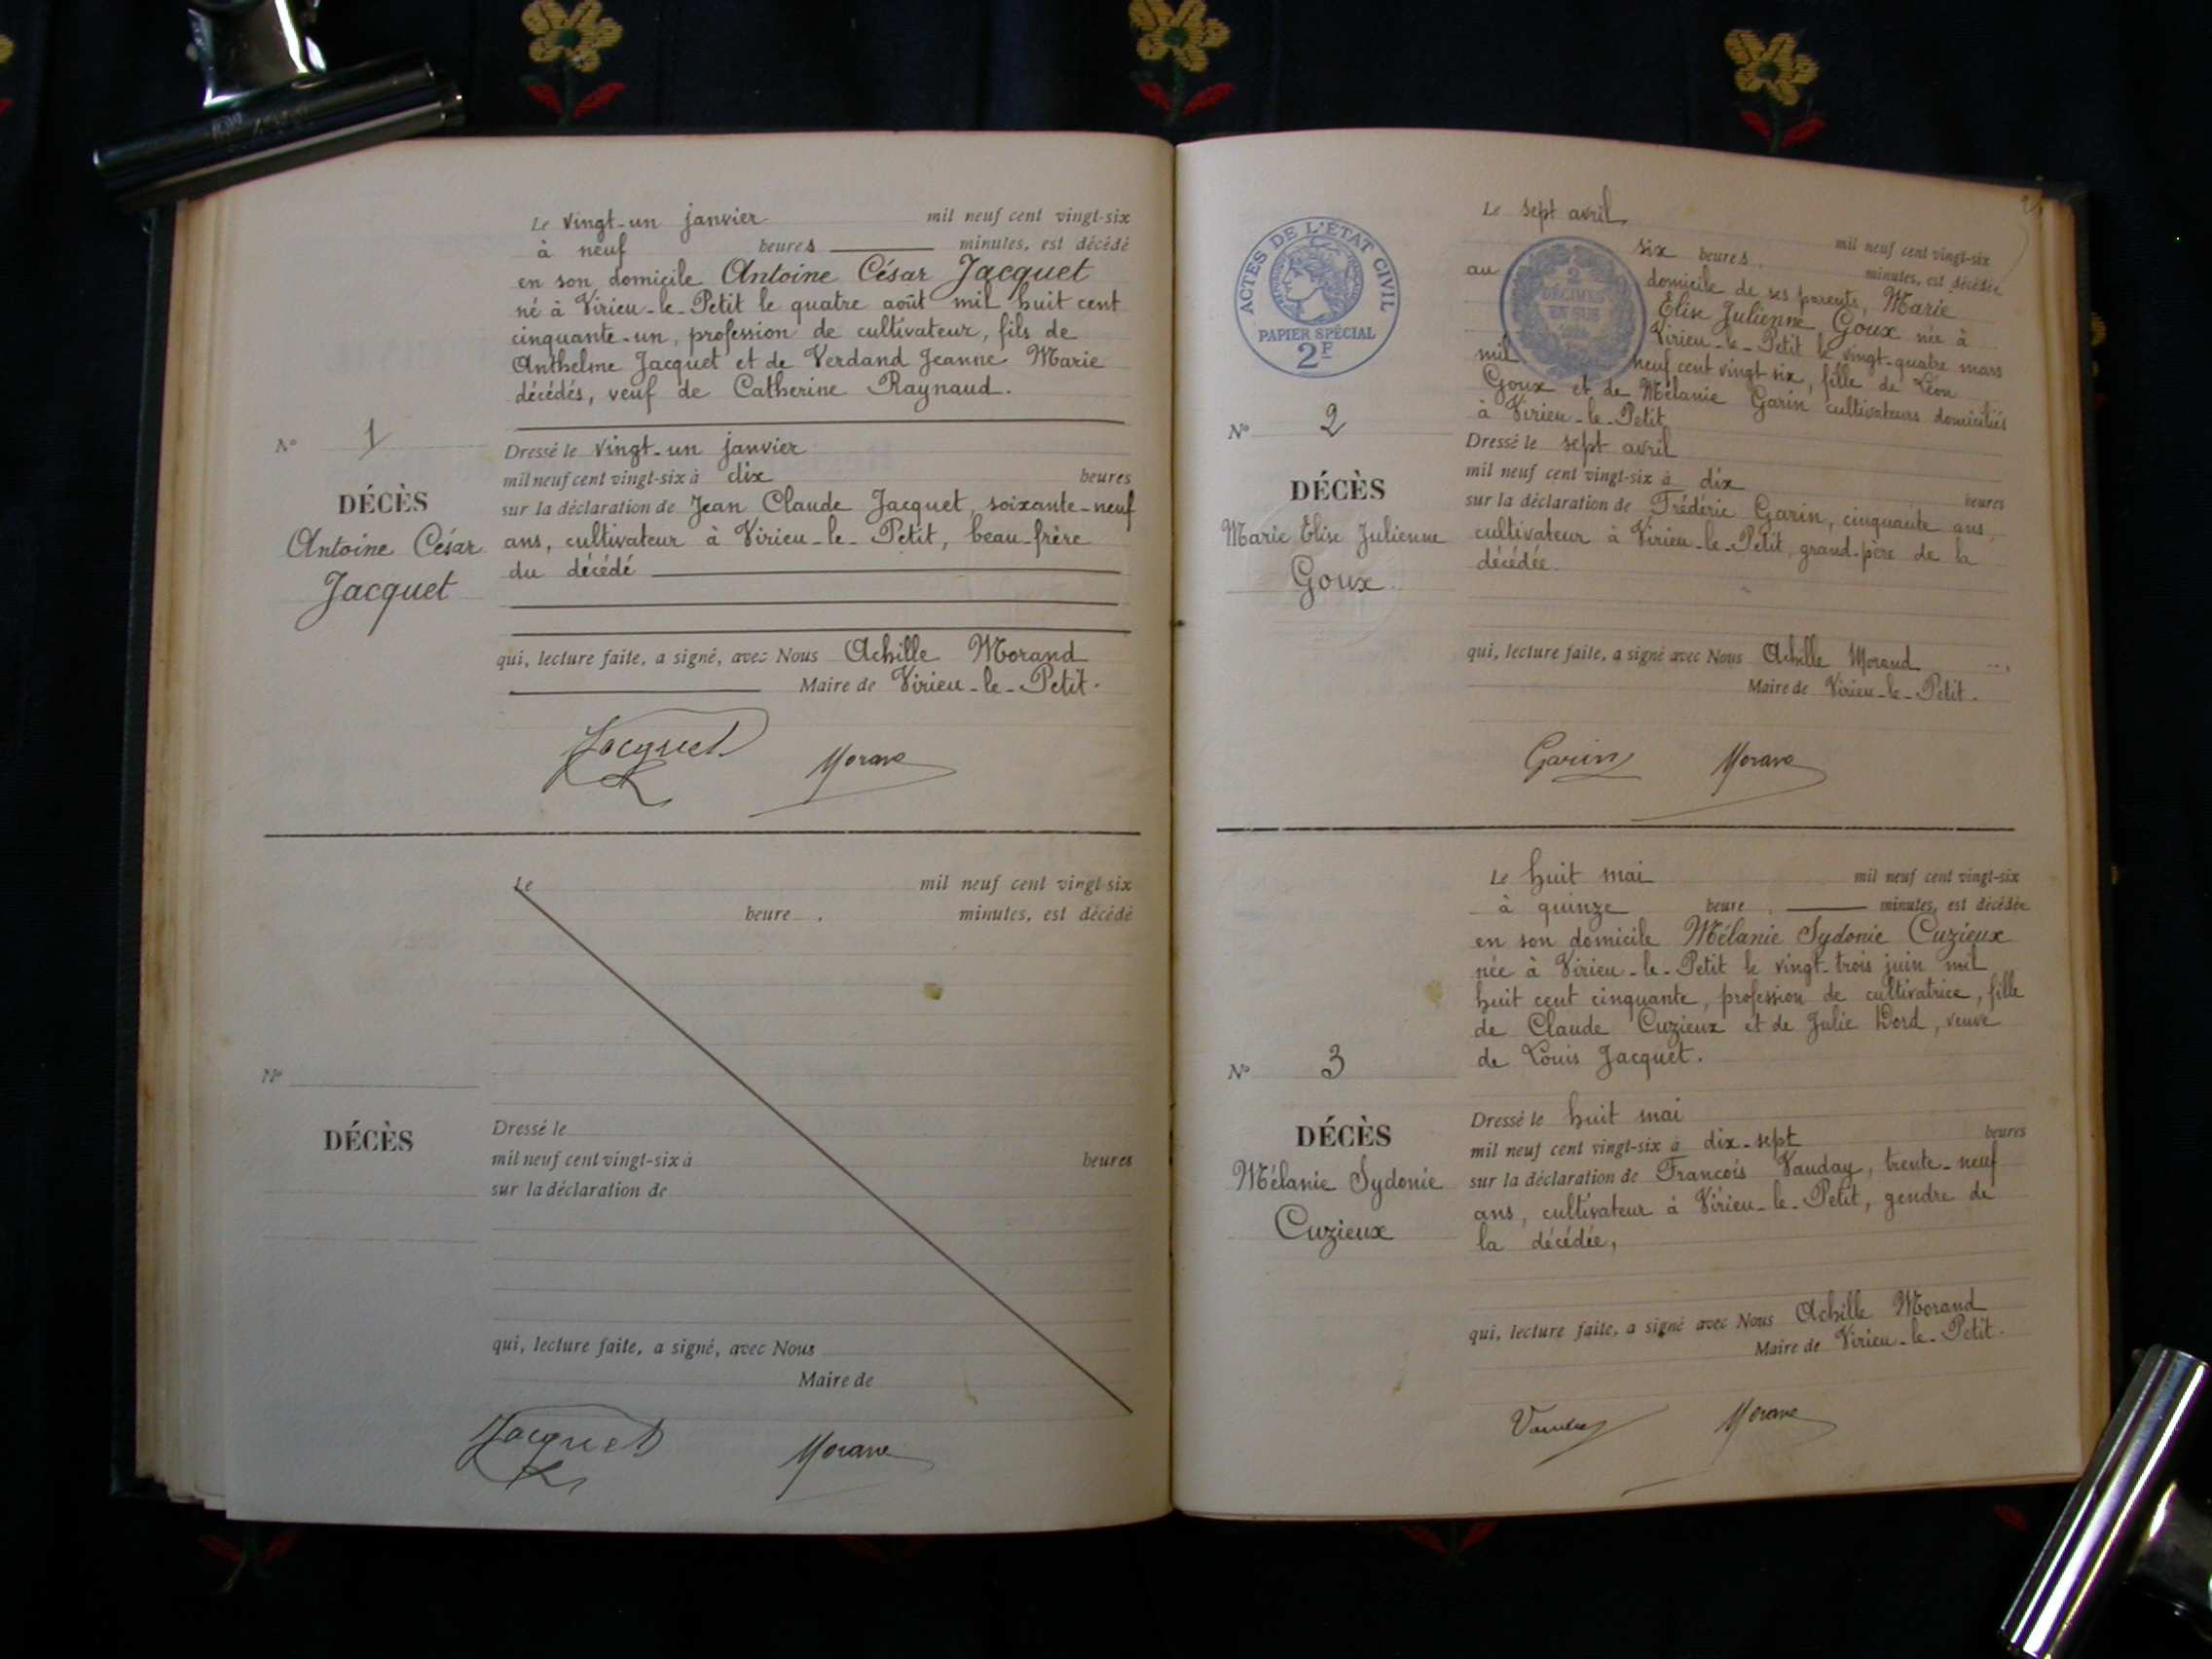 Le vingt-un janvier mil neuf cent vingt-six
à neuf heures minutes, est décédé
en son domicile Antoine César Jacquet
né à Virieu-le-Petit le quatre août mil huit cent
cinquante-un, profession de cultivateur, fils de
Anthelme Jacquet et de Verdand Jeanne Marie
décédés, veuf de Catherine Raynaud.
N° 1
DÉCÈS
Antoine César
Jacquet
Dressé le vingt-un janvier
mil neuf cent vingt-six à dix heures
sur la déclaration de Jean Claude Jacquet, soixante-neuf
ans, cultivateur à Virieu-le-Petit, beau-frère
du décédé
qui, lecture faite, a signé, avec Nous Achille Morand
Maire de Virieu-le-Petit.
Jacquet Morand
Le mil neuf cent vingt-six
heure minutes, est décédé
N°
DÉCÈS
Dressé le
mil neuf cent vingt-six à heures
sur la déclaration de
qui, lecture faite, a signé, avec Nous
Maire de
Jacquet Morand
2
ACTES DE L'ÉTAT CIVIL
PAPIER SPÉCIAL
2F
2
DÉCIMES
EN SUS
Le sept avril mil neuf cent vingt-six
six heures minutes, est décédée
au domicile de ses parents, Marie
Elise Julienne Goux née à
Virieu-le-Petit le vingt-quatre mars
mil neuf cent vingt six, fille de Léon
Goux et de Mélanie Garin cultivateurs domiciliés
à Virieu-le-Petit
N° 2
DÉCÈS
Marie Elise Julienne
Goux
Dressé le sept avril
mil neuf cent vingt-six à dix heures
sur la déclaration de Frédéric Garin, cinquante ans,
cultivateur à Virieu-le-Petit, grand-père de la
décédée.
qui, lecture faite, a signé avec Nous Achille Morand
Maire de Virieu-le-Petit.
Garin Morand
Le huit mai mil neuf cent vingt-six
à quinze heure minutes, est décédée
en son domicile Mélanie Sydonie Cuzieux
née à Virieu-le-Petit le vingt-trois juin mil
huit cent cinquante, profession de cultivatrice, fille
de Claude Cuzieux et de Julie Dord, veuve
de Louis Jacquet.
N° 3
DÉCÈS
Mélanie Sydonie
Cuzieux
Dressé le huit mai
mil neuf cent vingt-six à dix-sept heures
sur la déclaration de François Vauday, trente-neuf
ans, cultivateur à Virieu-le-Petit, gendre de
la décédée,
qui, lecture faite, a signé avec Nous Achille Morand
Maire de Virieu-le-Petit.
Vauday Morand